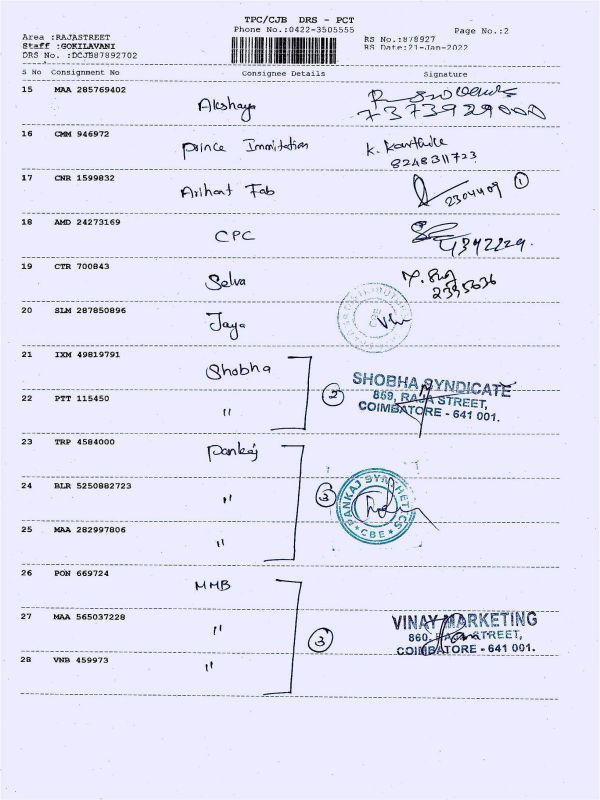 TPC/CJB DRS - PCT
Phone No.:0422-3505555 Page No.:2
Area :RAJASTREET RS No.:878927
Staff :GOKILAVANI RS Date:21-Jan-2022
DRS No. :DCJB87892702
S No Consignment No Consignee Details Signature
15 MAA 285769402 Akshaya
7373929000
16 CMM 946972 Prince Immitation K. Karthik
8248311723
17 CNR 1599832 Arihant Fab 2304409 1
18 AMD 24273169 CPC
19 CTR 700843 Selva
2395636
20 SLM 287850896 Jaya
21 IXM 49819791 Shobha
22 PTT 115450 " 2
SHOBHA SYNDICATE
859, RAJA STREET,
COIMBATORE - 641 001.
23 TRP 4584000 Pankaj
24 BLR 5250882723 " 3
PANKAJ SYNTHETICS
CBE
25 MAA 282997806 "
26 PON 669724 MMB
27 MAA 565037228 " 3
VINAY MARKETING
860, RAJA STREET,
COIMBATORE - 641 001.
28 VNB 459973 "